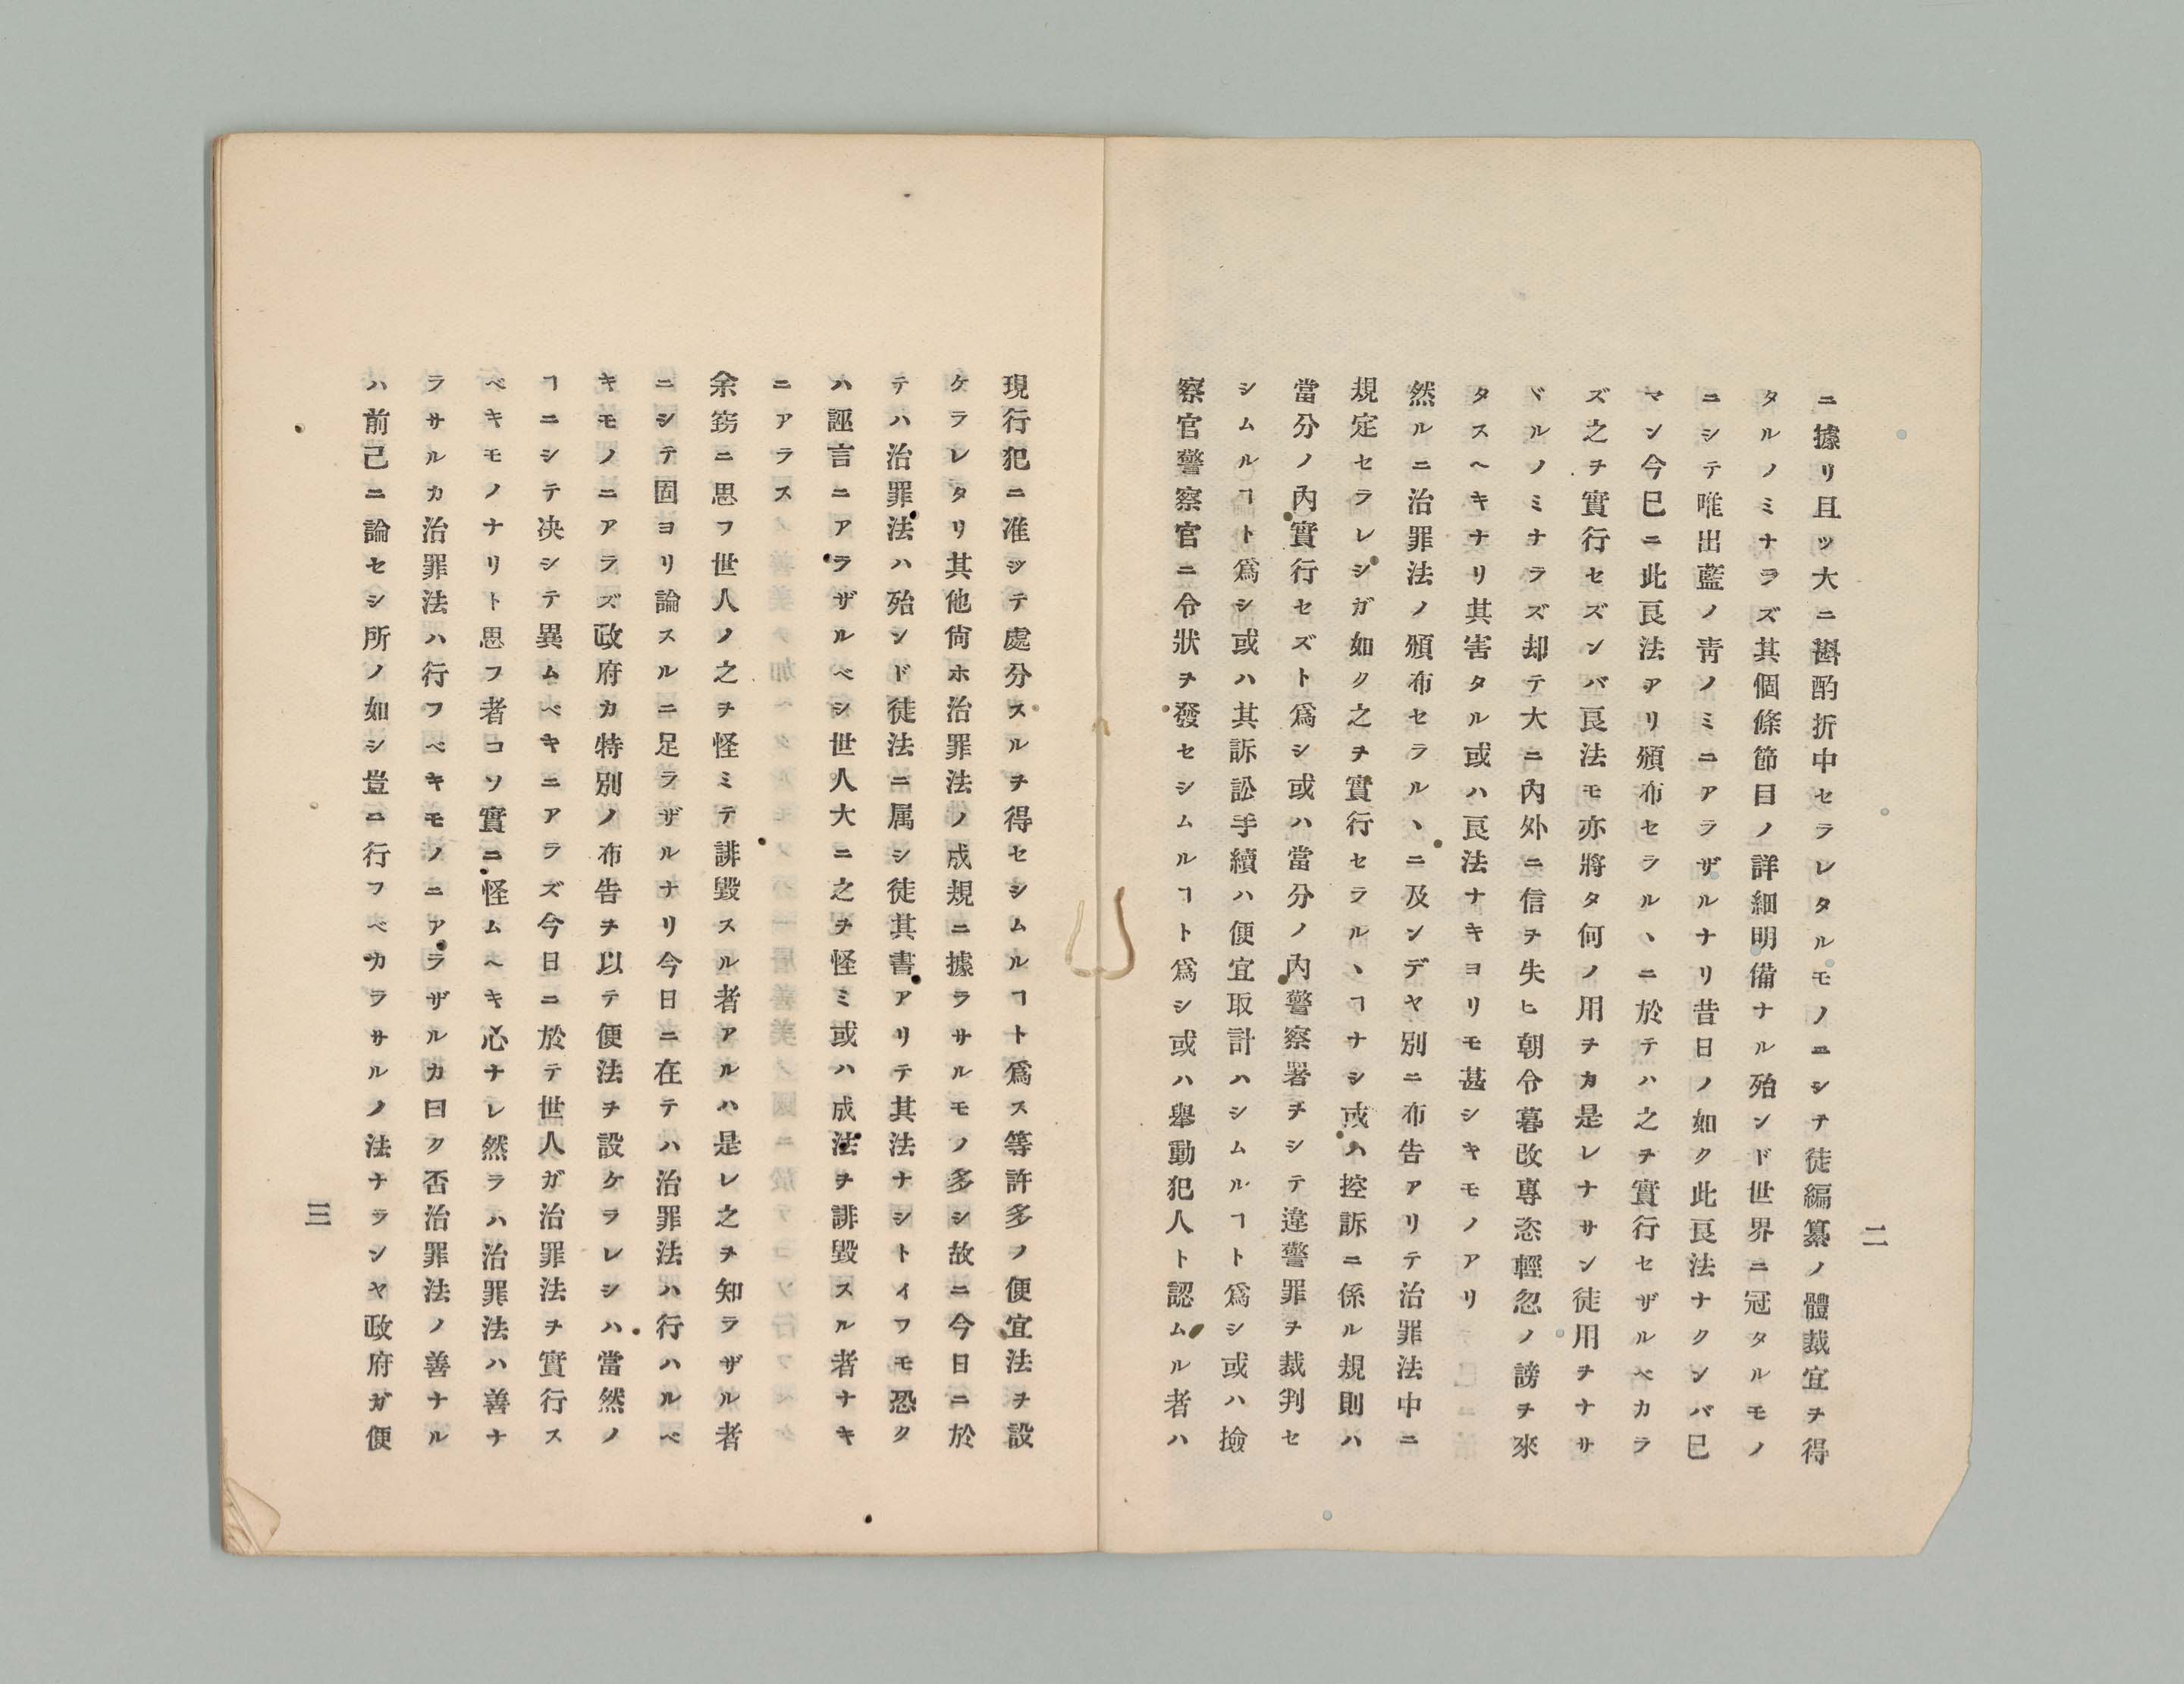 二
ニ據リ且ッ大ニ斟酌折中セラレタルモノニシテ徒編纂ノ體裁宜ヲ得
タルノミナラズ其個條節目ノ詳細明備ナル殆ンド世界ニ冠タルモノ
ニシテ唯出藍ノ靑ノミニアラザルナリ昔日ノ如ク此良法ナクンバ已
マン今已ニ此良法アリ頒布セラルヽニ於テハ之ヲ實行セザルベカラ
ズ之ヲ實行セズンバ良法モ亦將タ何ノ用ヲカ是レナサン徒用ヲナサ
ヾルノミナラズ却テ大ニ內外ニ信ヲ失ヒ朝令暮改專恣輕忽ノ謗ヲ來
タスヘキナリ其害タル或ハ良法ナキヨリモ甚シキモノアリ
然ルニ治罪法ノ頒布セラルヽニ及ンデヤ別ニ布告アリテ治罪法中ニ
規定セラレシガ如ク之ヲ實行セラルヽヿナシ或ハ控訴ニ係ル規則ハ
當分ノ內實行セズト爲シ或ハ當分ノ內警察署ヲシテ違警罪ヲ裁判セ
シムルヿト爲シ或ハ其訴訟手續ハ便宜取計ハシムルヿト爲シ或ハ撿
察官警察官ニ令狀ヲ發セシムルヿト爲シ或ハ舉動犯人ト認ムル者ハ
現行犯ニ准シテ處分スルヲ得セシムルヿト爲ス等許多ノ便宜法ヲ設
ケラレタリ其他尙ホ治罪法ノ成規ニ據ラサルモノ多シ故ニ今日ニ於
テハ治罪法ハ殆ンド徒法ニ属シ徒其書アリテ其法ナシトイフモ恐ク
ハ誣言ニアラザルベシ世人大ニ之ヲ怪ミ或ハ成法ヲ誹毀スル者ナキ
ニアラス
余竊ニ思フ世人ノ之ヲ怪ミテ誹毀スル者アルハ是レ之ヲ知ラザル者
ニシテ固ヨリ論スルニ足ラザルナリ今日ニ在テハ治罪法ハ行ハルベ
キモノニアラズ政府カ特別ノ布告ヲ以テ便法ヲ設ケラレシハ當然ノ
ヿニシテ决シテ異ムベキニアラズ今日ニ於テ世人ガ治罪法ヲ實行ス
ベキモノナリト思フ者コソ實ニ怪ムヘキ心ナレ然ラハ治罪法ハ善ナ
ラサルカ治罪法ハ行フベキモノニアラザルカ曰ク否治罪法ノ善ナル
ハ前已ニ論セシ所ノ如シ豈ニ行フベカラサルノ法ナラシヤ政府ガ便
三